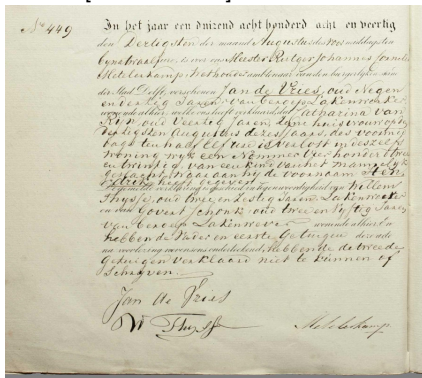 No 449
In het jaar een duizend acht honderd acht en veertig
den Dertigsten der maand Augustus des voormiddags ten
ure, is voor ons Meester Rutger Johannes
Metelerkamp, Wethouder ambtenaar van den burgerlijken stand
der Stad Delft, verschenen Jan de Vries, oud Negen
en dertig Jaren, van beroep Lakenwerker,
wonende alhier, welke ons heeft verklaard dat Catharina van
oud Veertig Jaren, zijne huisvrouw op den
Dertigsten Augustus dezes Jaars, des voormid
dags ten half elf ure is verlost in deszelfs
woning wijk Een Nommer Vier honderd twee
en twintig van een kind van het mannelijk
geslacht, waaraan hij de voornaam Hen
drik heeft gegeven
in tegenwoordigheid van Willem
Thysse, oud twee en zestig Jaren, Lakenwerker
en van Govert Schonk, oud twee en vyftig Jaren
van beroep Lakenwever wonende alhier. En
hebben de Vader en eerste Getuigen deze acte
na voorlezing nevens ons onderteekend, hebbende de tweede
getuigen verklaard niet te kunnen
Schryven.
Jan de Vries
W Thysse
Metelerkamp